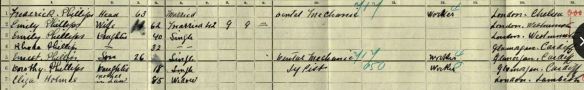 1 Frederick Phillips Head 63 Married Dental Mechanic 717 Worker London Chelsea
2 Emily Phillips Wife 62 Married 42 9 9 London
3 Emily Phillips Daughter 40 Single London
4 Rhoda Phillips 32 Glamorgan Cardiff
5 Ernest Phillips Son 26 Single Dental Mechanic 717 Worker Glamorgan Cardiff
6 Dorothy Phillips Daughter 18 Single Typist 050 Worker Glamorgan Cardiff
7 Eliza Holmes mother in law 85 Widow London Lambeth